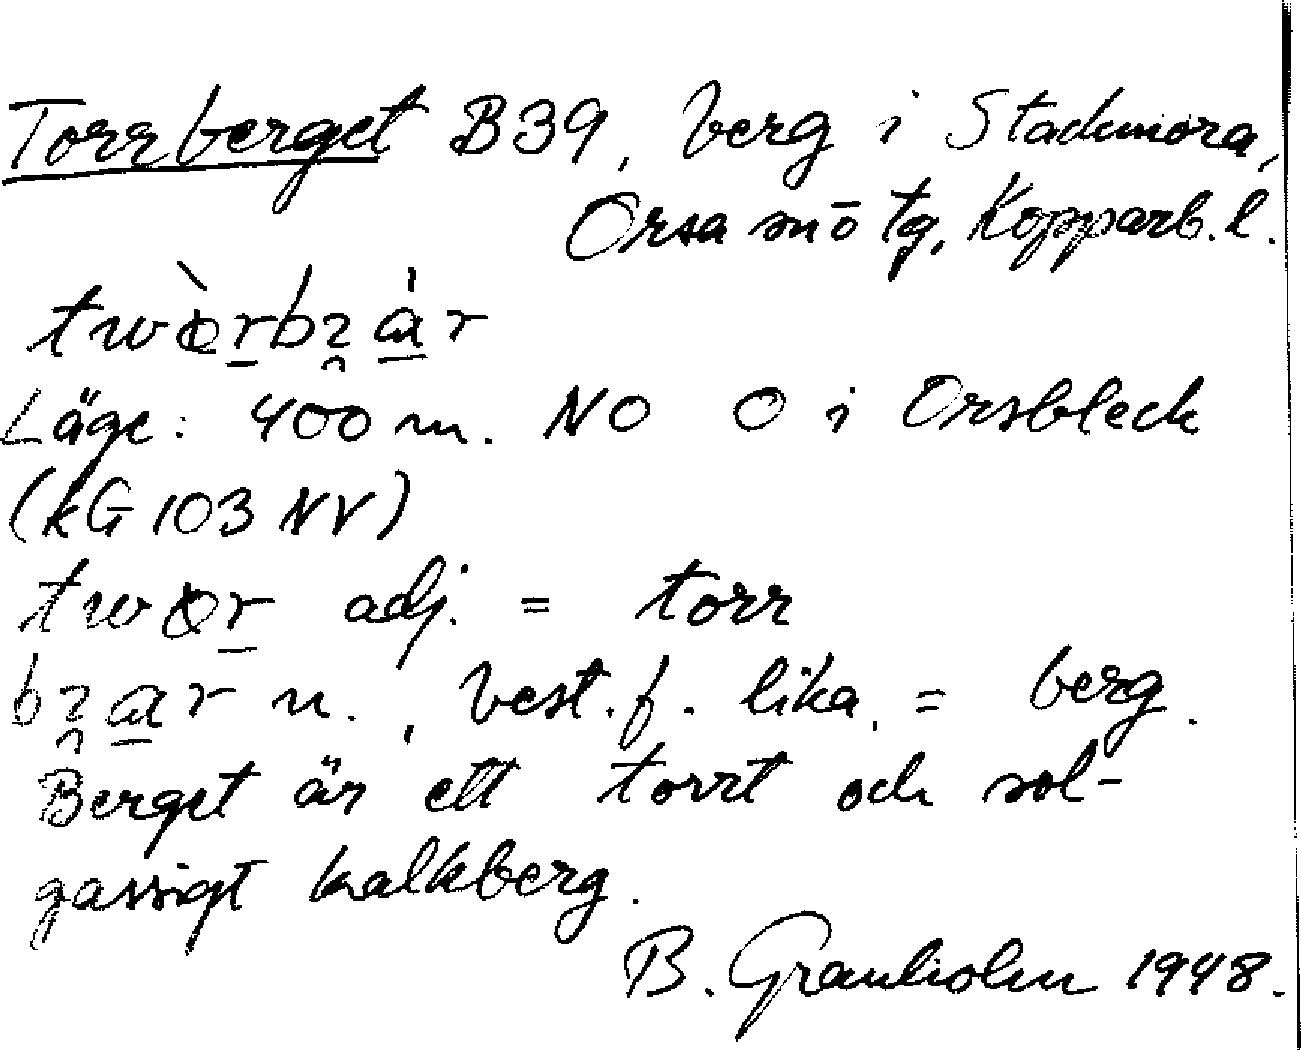 Torrberget B39, berg i Stackmora,
Orsa sn ö tg, Kopparb. l.
Läge: 400 m. NO O i Orsbleck
(kG 103 NV)
adj. = torr
n., best. f. lika, = berg.
Berget är ett torrt och sol-
gassigt kalkberg.
B. Granholm 1948.